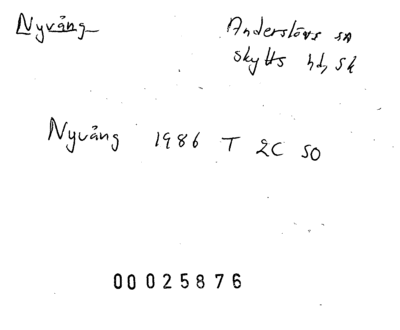 Nyvång
Anderslövs sn
Skytts hd, Sk
Nyvång 1986 T 2C SO
00025876